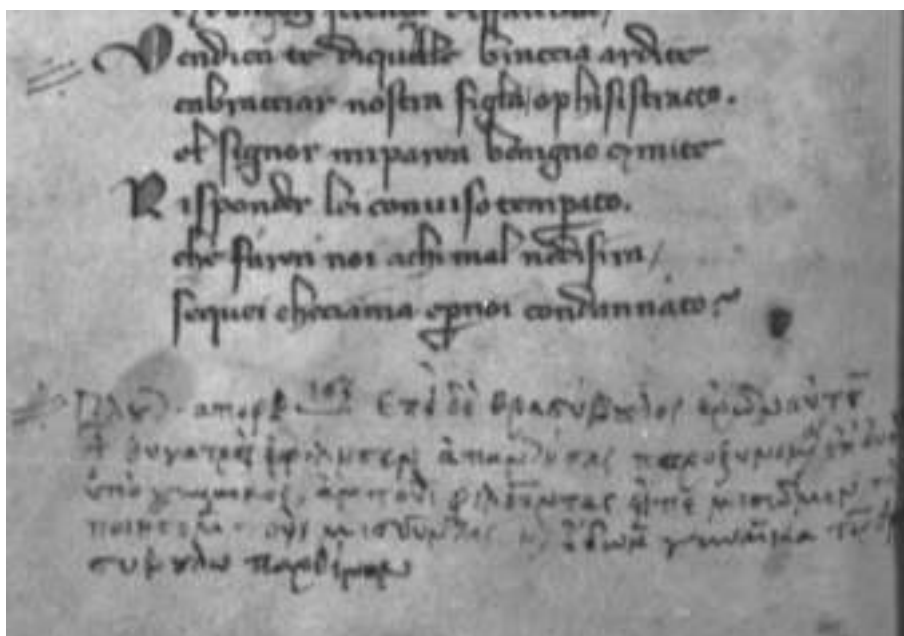 Vendica te di quelle braccia ardite
cabracciar nostra figla / o phisistrato.
el signor mi parea benigno & mite
Risponder lei con viso temperato.
che farem noi a chi mal ne disira /
se quei che ci ama e per noi condannato?
Πλουτ. αποφθ. 103 Επεὶ δὲ θρασύβουλος ἐρῶν αὐτοῦ
θυγατρὸς ἐφίλησεν ἀπαντήσας παροξυνόμενος ἐπ' αὐτ
ὑπὸ γυναικός, ἂν τοὺς φιλοῦντας εἶπε μισῶμεν τί
ποιήσομεν τοὺς μισοῦντας καὶ ἔδωκε γυναῖκα τῷ θρα
συβούλω παρθένον